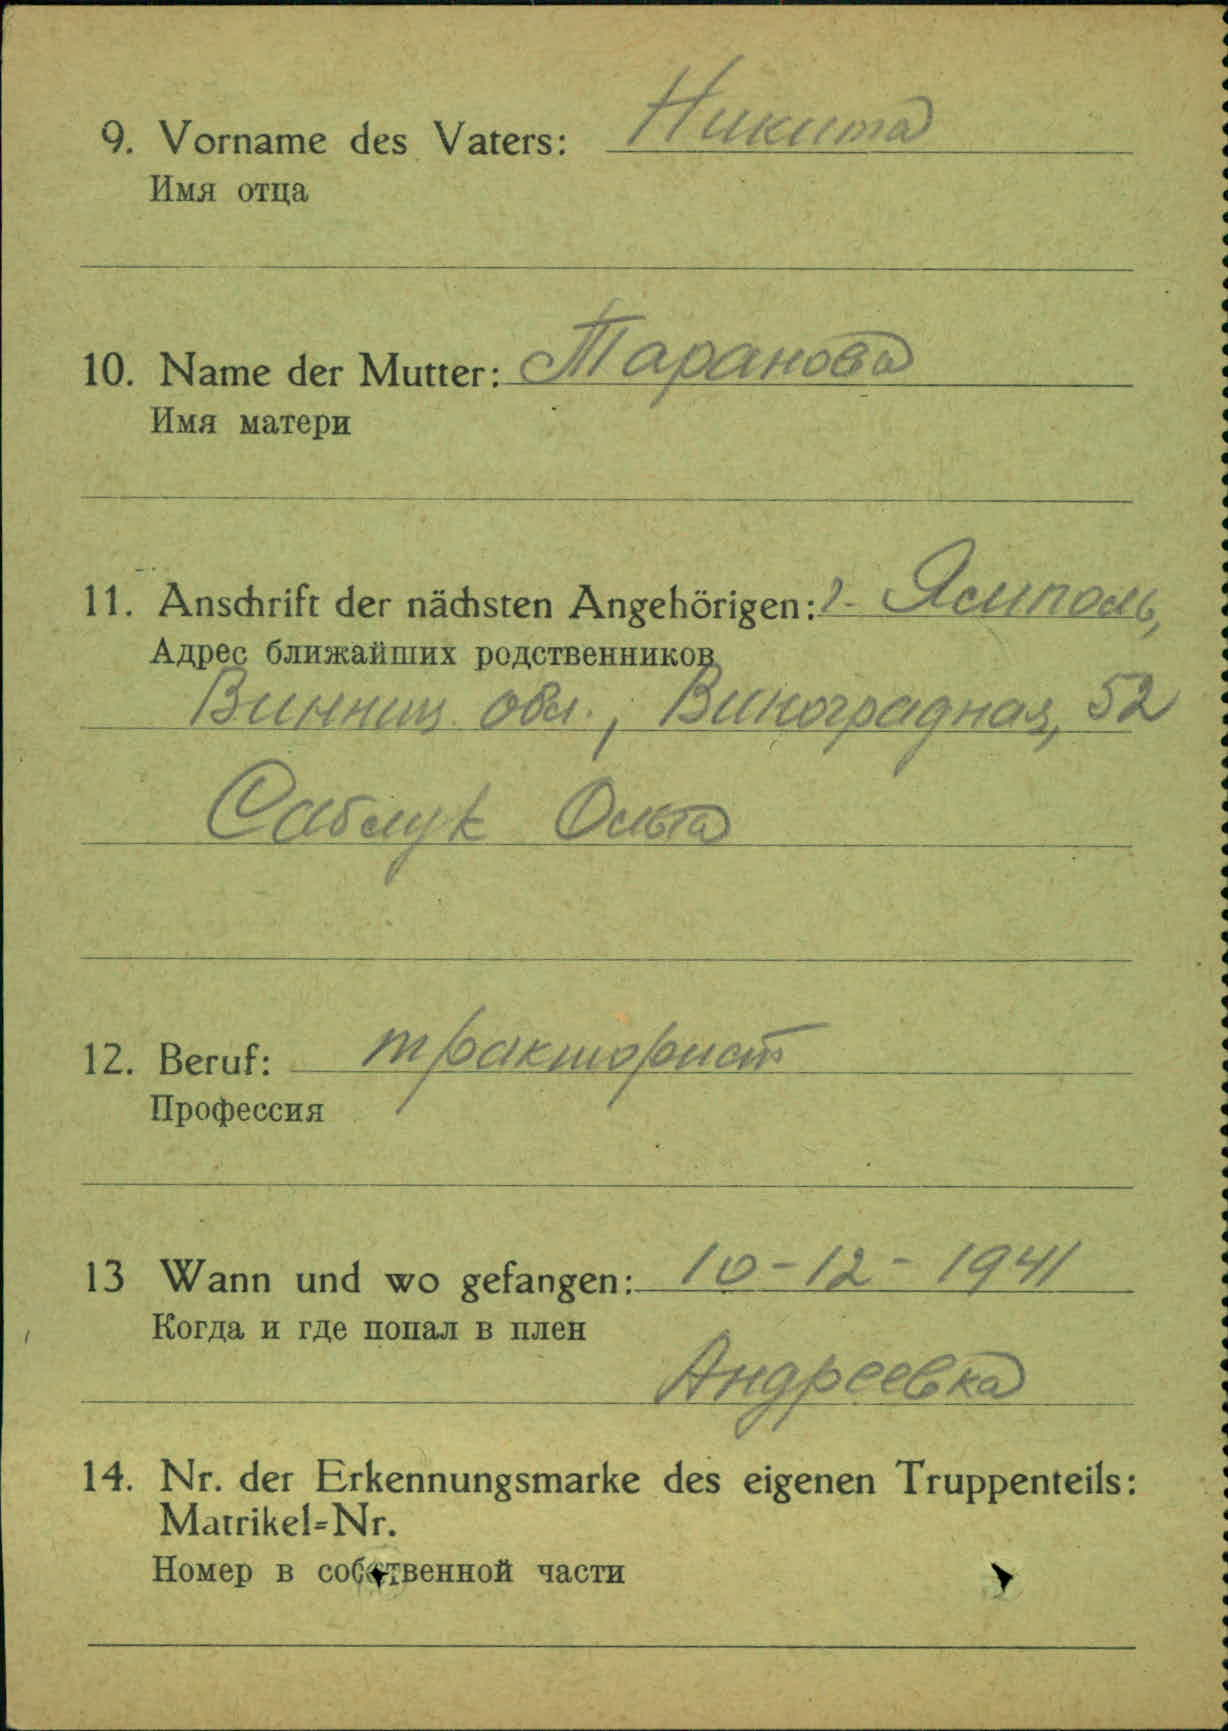 9. Vorname des Vaters: Никита
Имя отца
10. Name der Mutter: Таранова
Имя матери
11. Anschrift der nächsten Angehörigen: г. Ямполь,
Адрес ближайших родственников
Винниц. обл., Виноградная, 52
Саблук Ольга
12. Beruf: тракторист
Профессия
13 Wann und wo gefangen: 10-12-1941
Когда и где попал в плен
Андреевка
14. Nr. der Erkennungsmarke des eigenen Truppenteils:
Matrikel=Nr.
Номер в собственной части